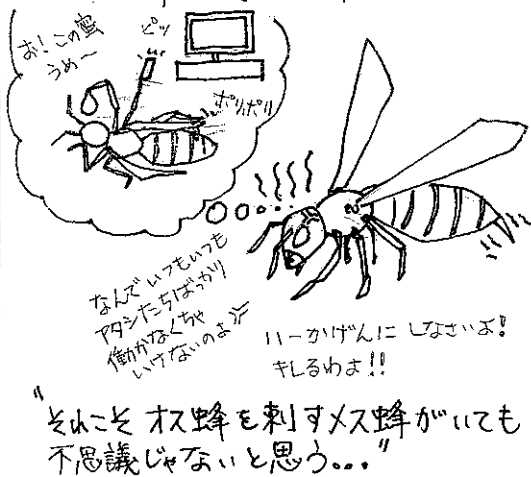 お！この蜜
うめ〜
ピッ
ポリポリ
なんでいつもいつも
アタシたちばっかり
働かなくちゃ
いけないのよ
いーかげんに しなさいよ！
キレるわよ！！
"それこそ オス蜂を刺すメス蜂がいても
不思議じゃないと思う..."